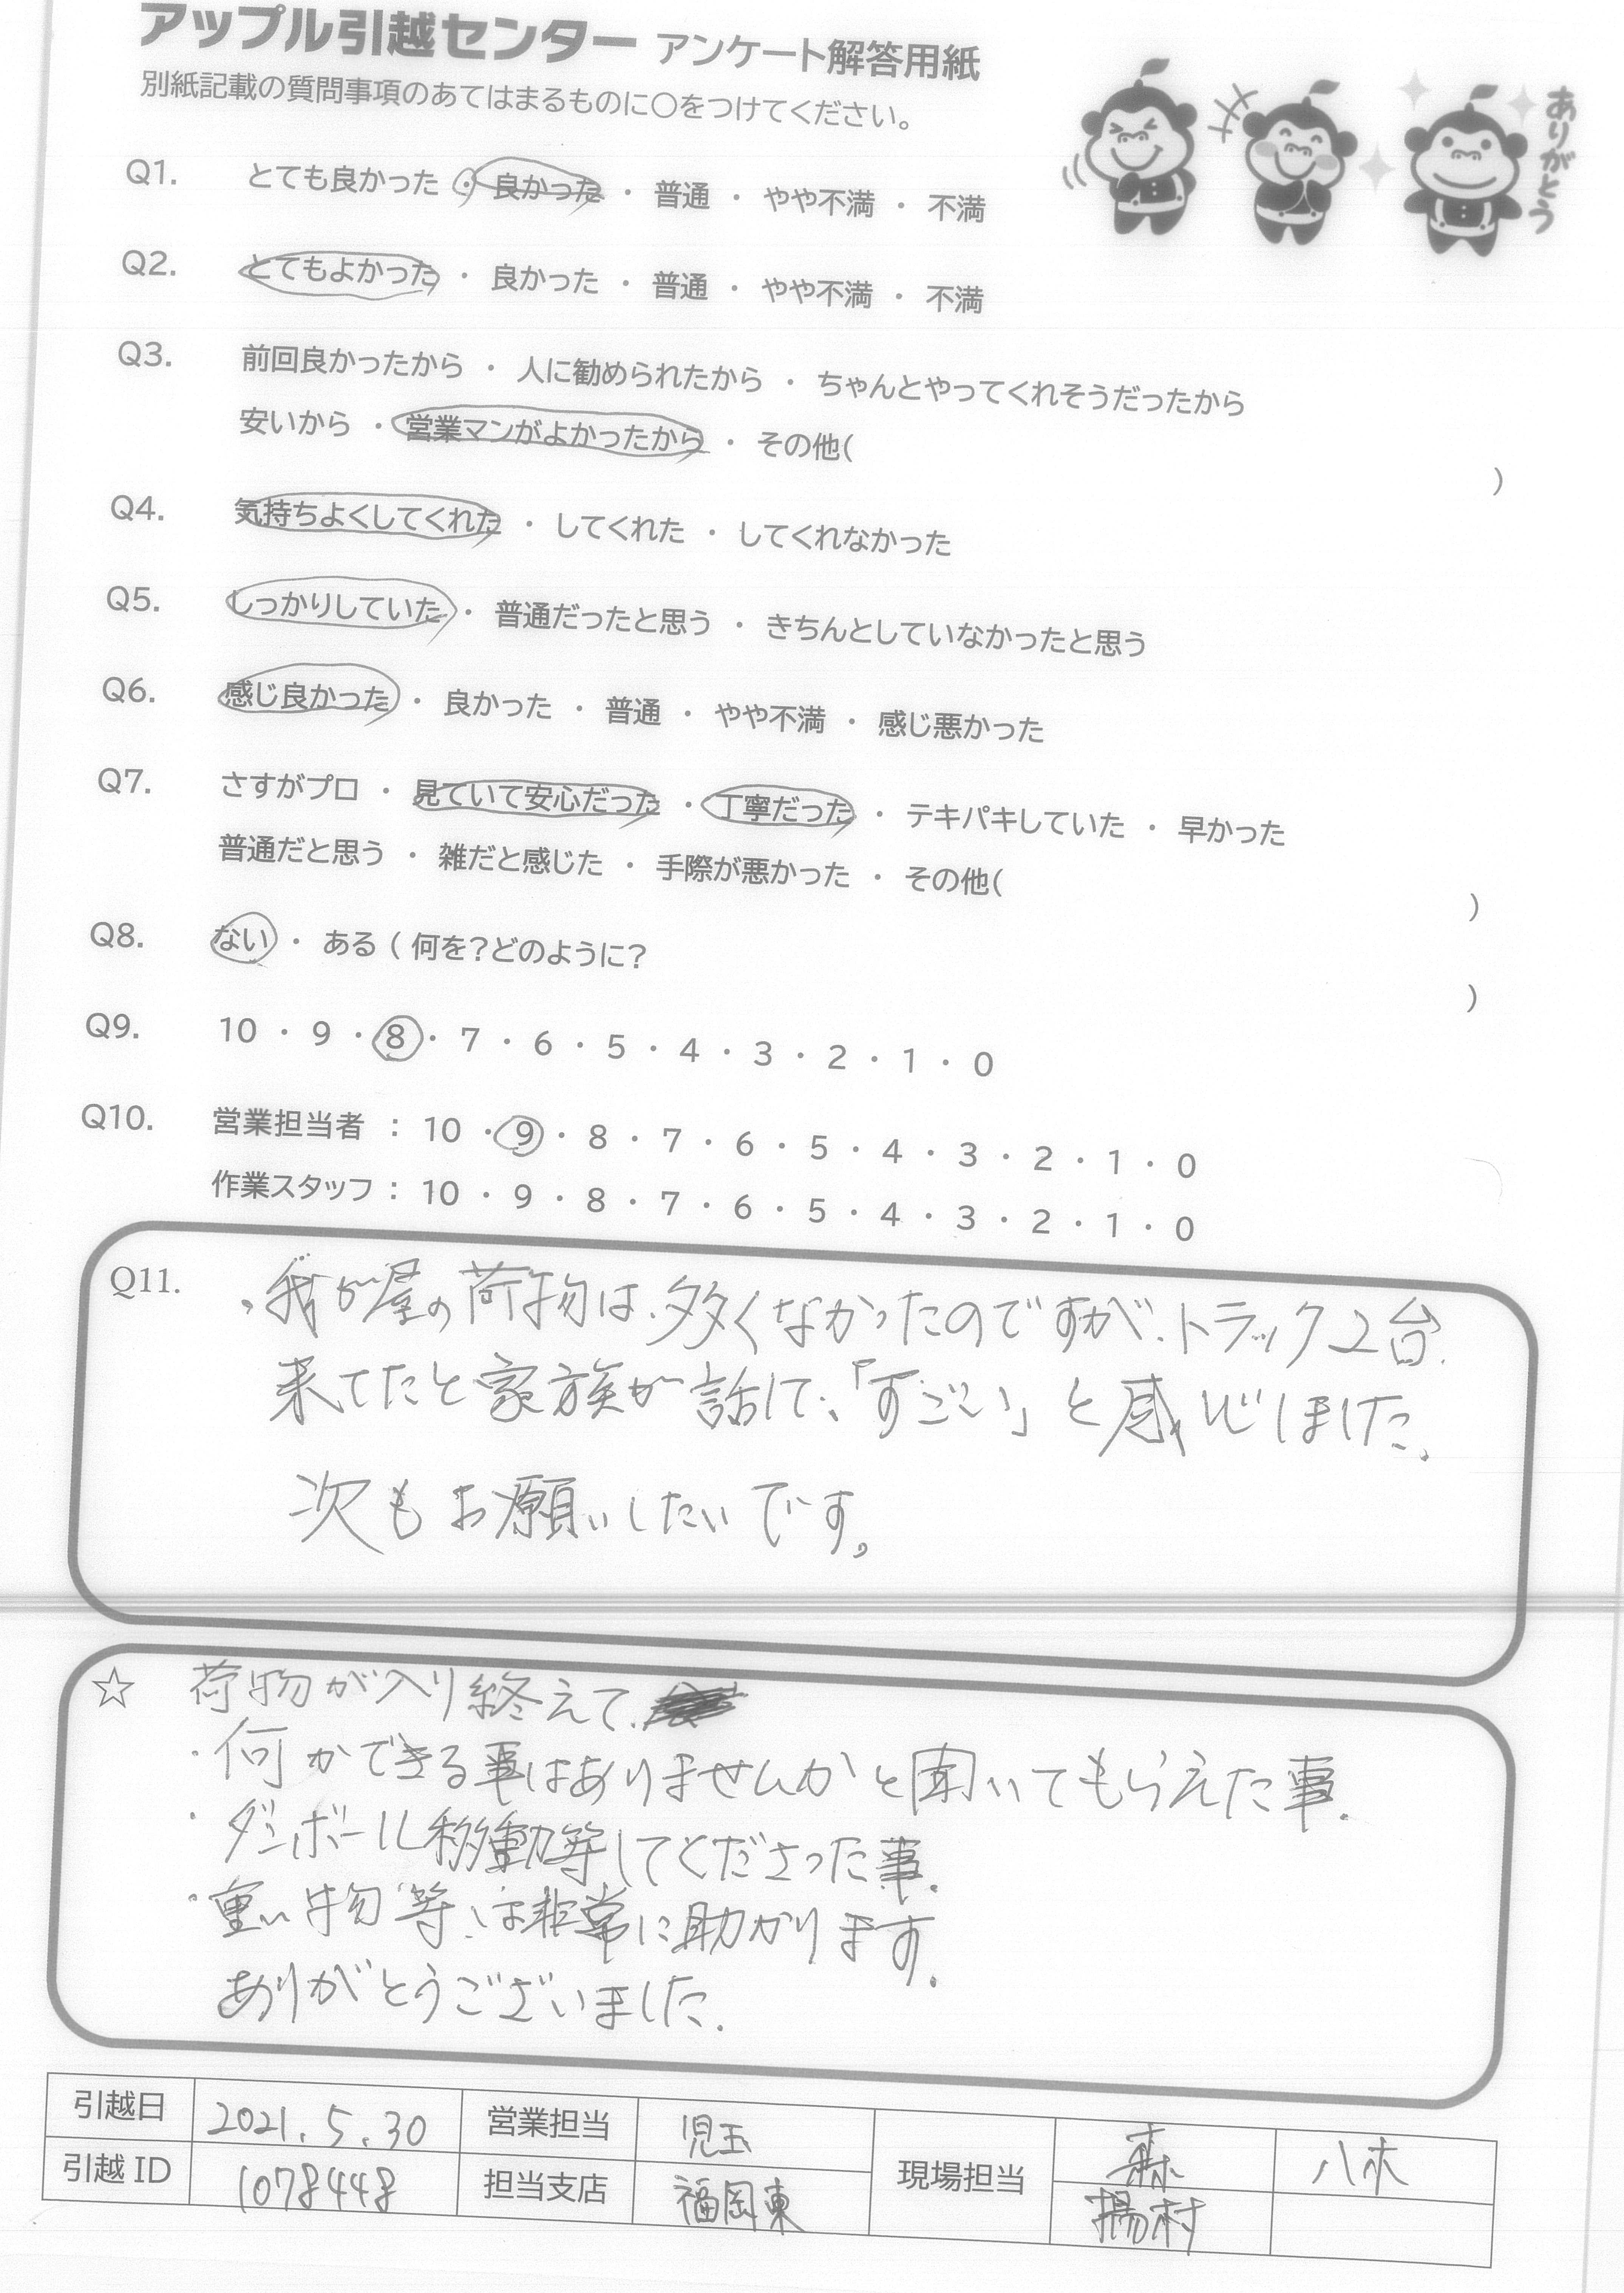 アップル引越センター アンケート解答用紙
別紙記載の質問事項のあてはまるものに○をつけてください。
ありがとう
Q1. とても良かった ・ 良かった ・ 普通 ・ やや不満 ・ 不満
Q2. とてもよかった ・ 良かった ・ 普通 ・ やや不満 ・ 不満
Q3. 前回良かったから ・ 人に勧められたから ・ ちゃんとやってくれそうだったから
安いから ・ 営業マンがよかったから ・ その他( )
Q4. 気持ちよくしてくれた ・ してくれた ・ してくれなかった
Q5. しっかりしていた ・ 普通だったと思う ・ きちんとしていなかったと思う
Q6. 感じ良かった ・ 良かった ・ 普通 ・ やや不満 ・ 感じ悪かった
Q7. さすがプロ ・ 見ていて安心だった ・ 丁寧だった ・ テキパキしていた ・ 早かった
普通だと思う ・ 雑だと感じた ・ 手際が悪かった ・ その他( )
Q8. ない ・ ある ( 何を?どのように? )
Q9. 10 ・ 9 ・ 8 ・ 7 ・ 6 ・ 5 ・ 4 ・ 3 ・ 2 ・ 1 ・ 0
Q10. 営業担当者 : 10 ・ 9 ・ 8 ・ 7 ・ 6 ・ 5 ・ 4 ・ 3 ・ 2 ・ 1 ・ 0
作業スタッフ : 10 ・ 9 ・ 8 ・ 7 ・ 6 ・ 5 ・ 4 ・ 3 ・ 2 ・ 1 ・ 0
Q11. 、我が屋の荷物は、多くなかったのですが、トラック2台
来てたと家族が話して、「すごい」と感じしました。
次もお願いしたいです。
☆ 荷物が入り終えて、
・何かできる事はありませんかと聞いてもらえた事.
・ダンボール移動等してくださった事.
・重い物等、は非常に助かります.
ありがとうございました.
引越日 2021.5.30 営業担当 児玉 現場担当 森 八木
引越 ID 1078448 担当支店 福岡東 楊村